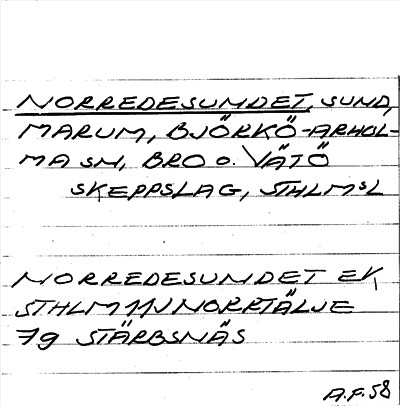 NORREDESUNDET, SUND,
MARUM, BJÖRKÖ-ARHOL-
MA SN, BRO O. VÄTÖ
SKEPPSLAG, STHLMSL
NORREDESUNDET EK
STHLM 11J NORRTÄLJE
7g STÄRBSNÄS
A.F. 58